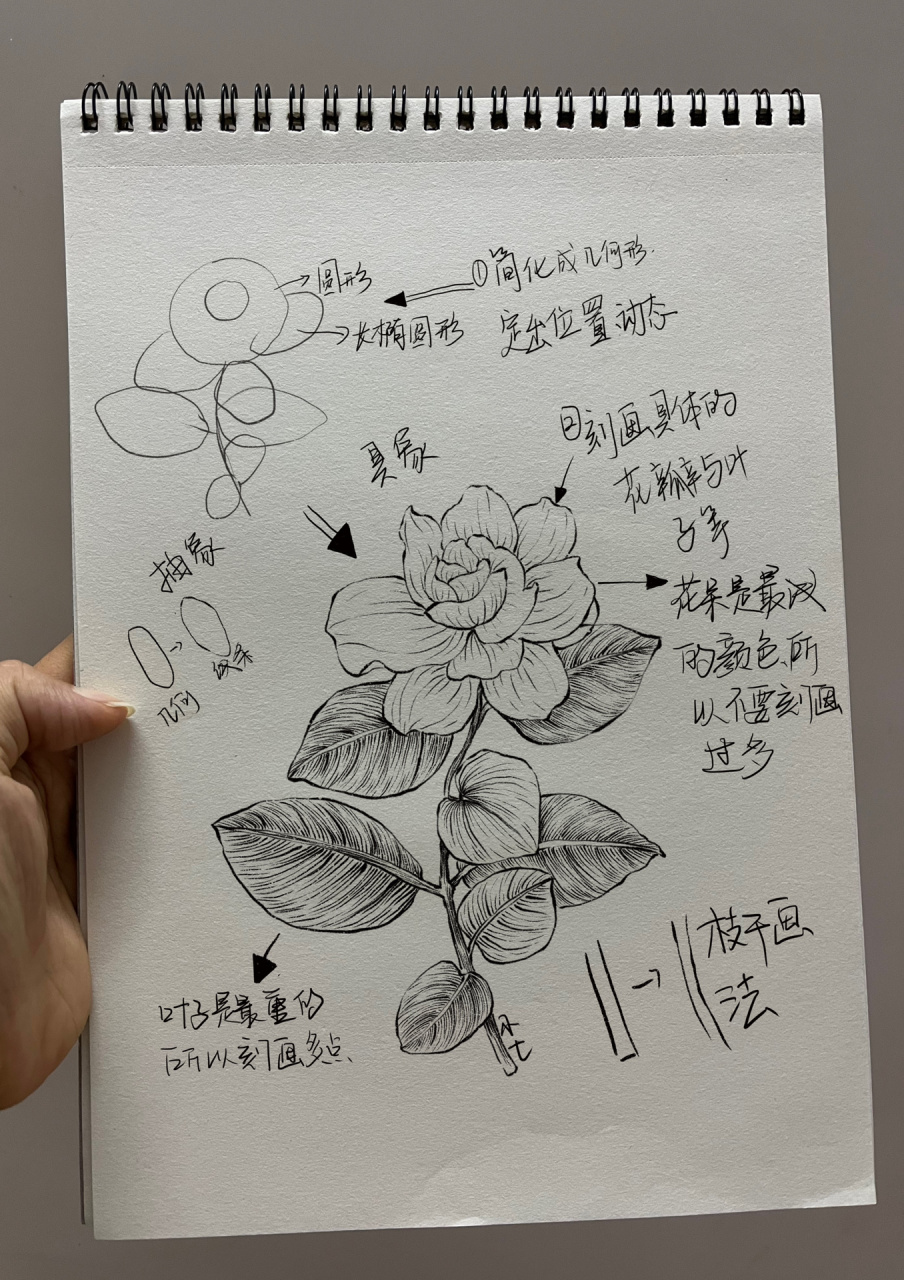 ①简化成几何形.
定出位置动态
圆形
长椭圆形
②刻画具体的
花瓣与叶
子等
具象
抽象
几何
花朵是最浅
的颜色,所
以不要刻画
过多
枝干画
法
叶子是最重的
所以刻画多点